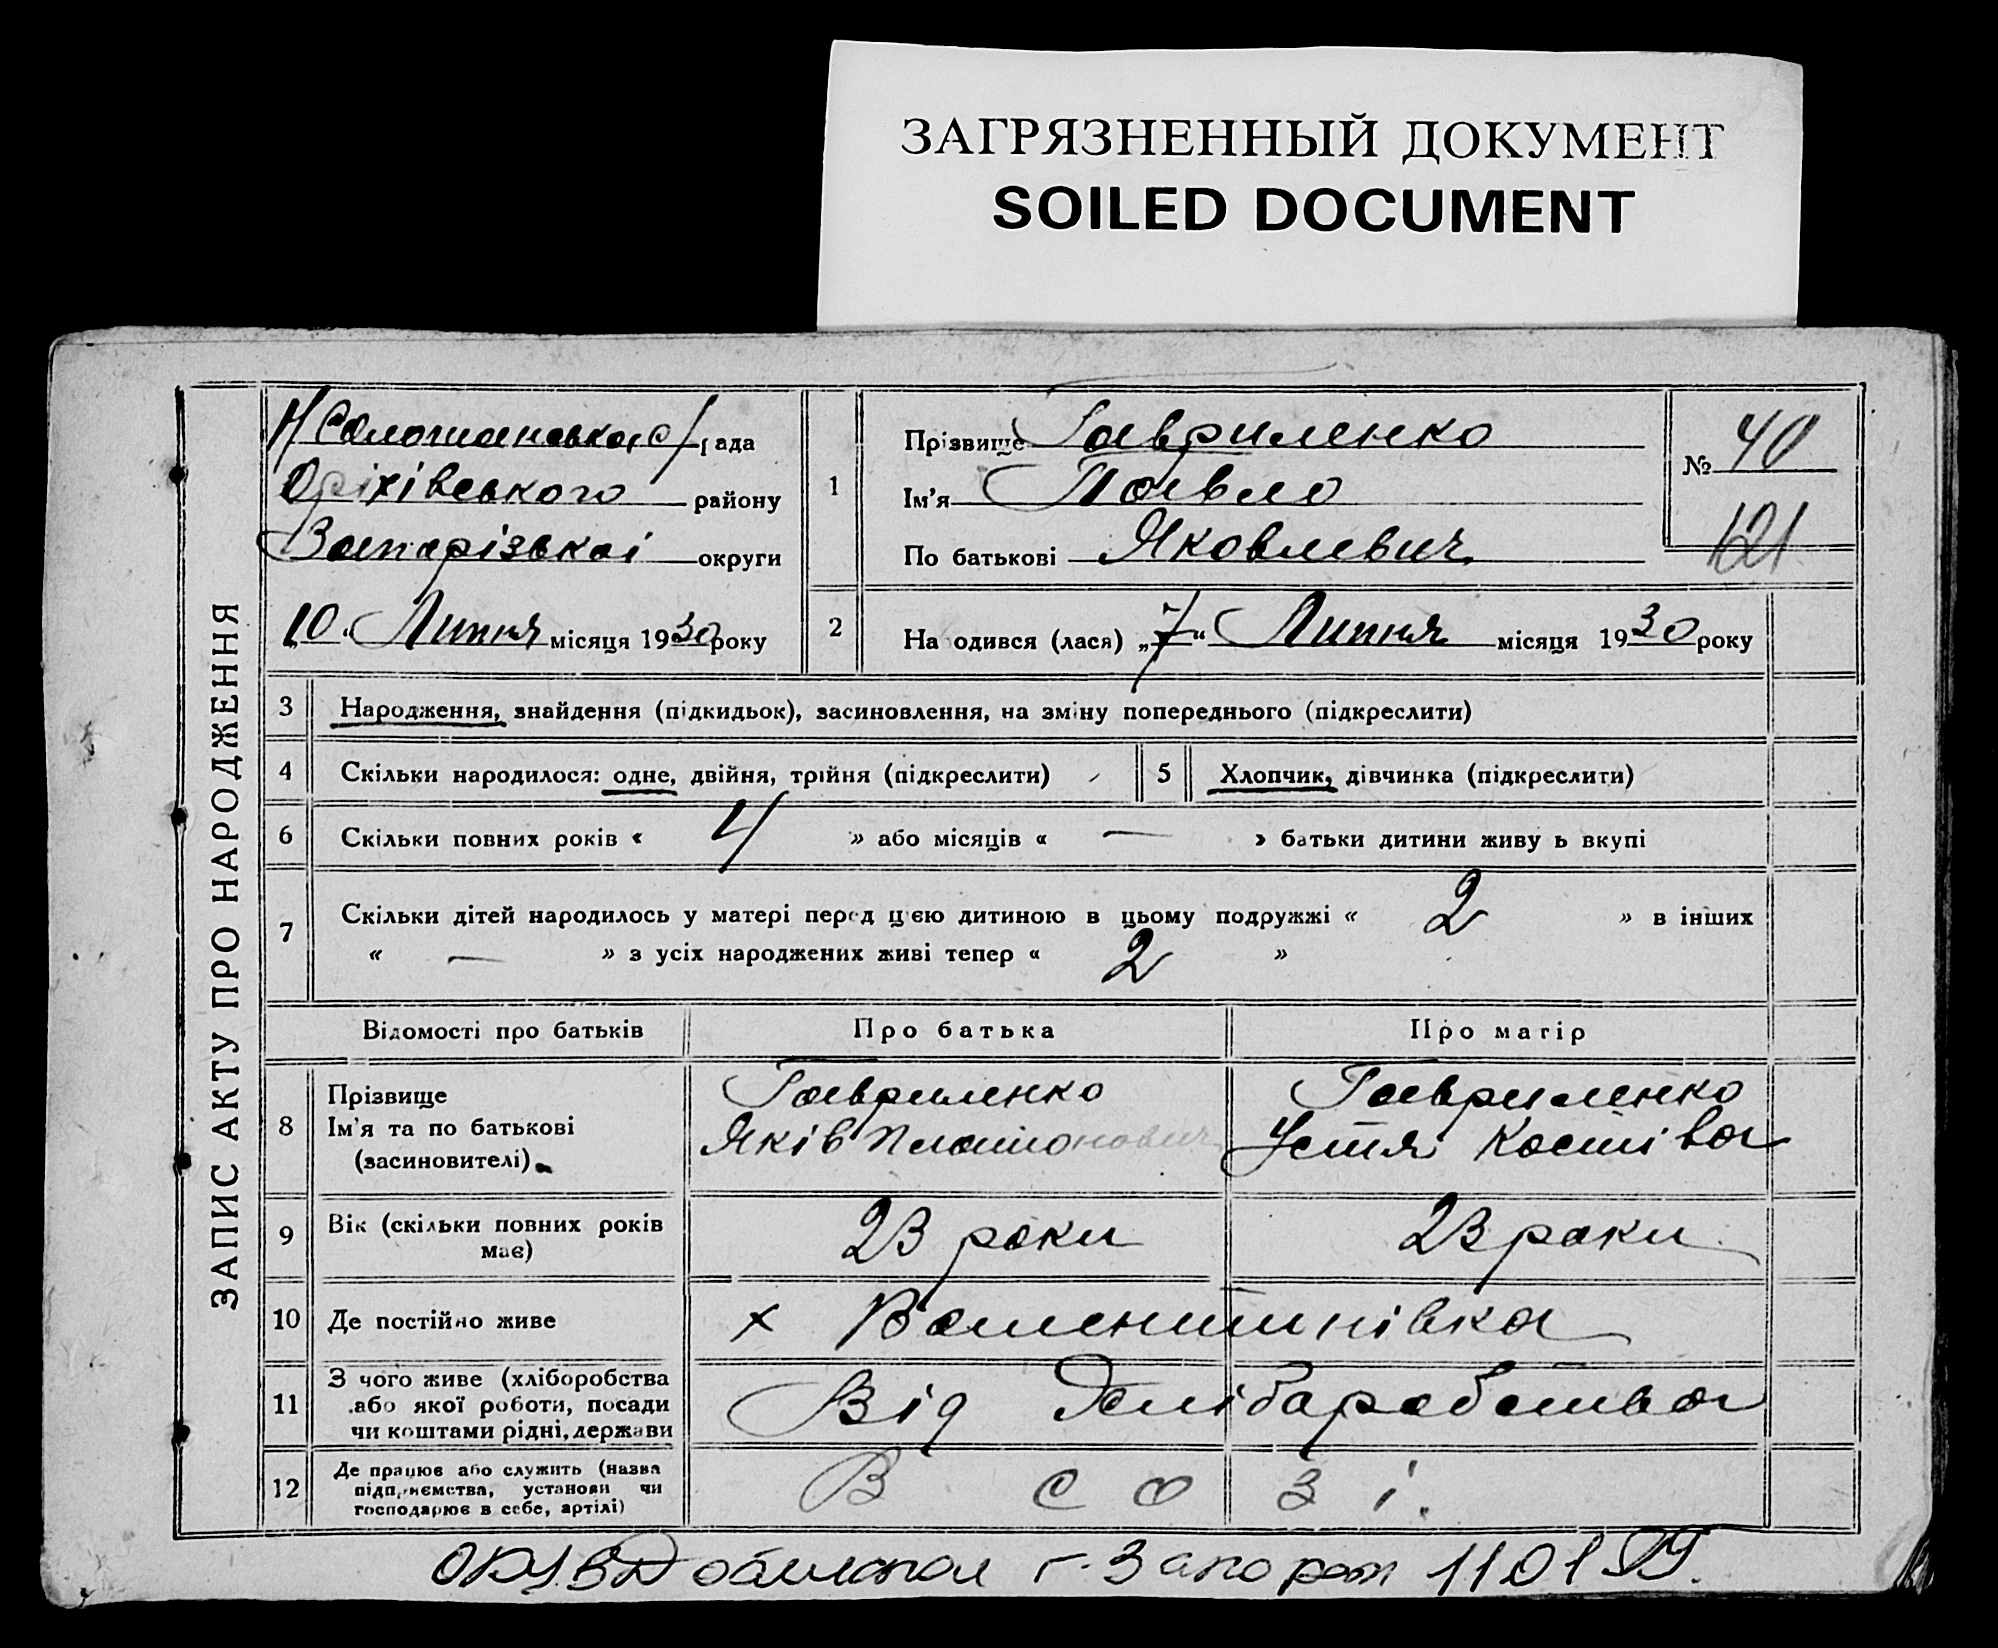 ЗАГРЯЗНЕННЫЙ ДОКУМЕНТ
SOILED DOCUMENT
ЗАПИС АКТУ ПРО НАРОДЖЕННЯ
рада
Оріхівського району
Запорізькоі округи
„10“ Липня місяця 1930 року
1
Прізвище Гавриленко
Ім'я Павло
По батькові Яковлевич
№ 40
121
2
Народився (лася) „7“ Липня місяця 1930 року
3 Народження, знайдення (підкидьок), засиновлення, на зміну попереднього (підкреслити)
4 Скільки народилося: одне, двійня, трійня (підкреслити)
5 Хлопчик, дівчинка (підкреслити)
6 Скільки повних років « 4 » або місяців « — » батьки дитини живуть вкупі
7 Скільки дітей народилось у матері перед цією дитиною в цьому подружжі « 2 » в інших
« — » з усіх народжених живі тепер « 2 »
Відомості про батьків Про батька Про матір
8 Прізвище
Ім'я та по батькові
(засиновителі)
Гавриленко
Яків Платонович
Гавриленко
Устя Костівна
9 Вік (скільки повних років
має)
23 роки 23 роки
10 Де постійно живе х Валентинівка
11 З чого живе (хліборобства
або якої роботи, посади
чи коштами рідні, держави
Від Хліборобства
12 Де працює або служить (назва
підприємства, установи чи
господарює в себе, артілі)
В созі.
г. Запорож 11 01